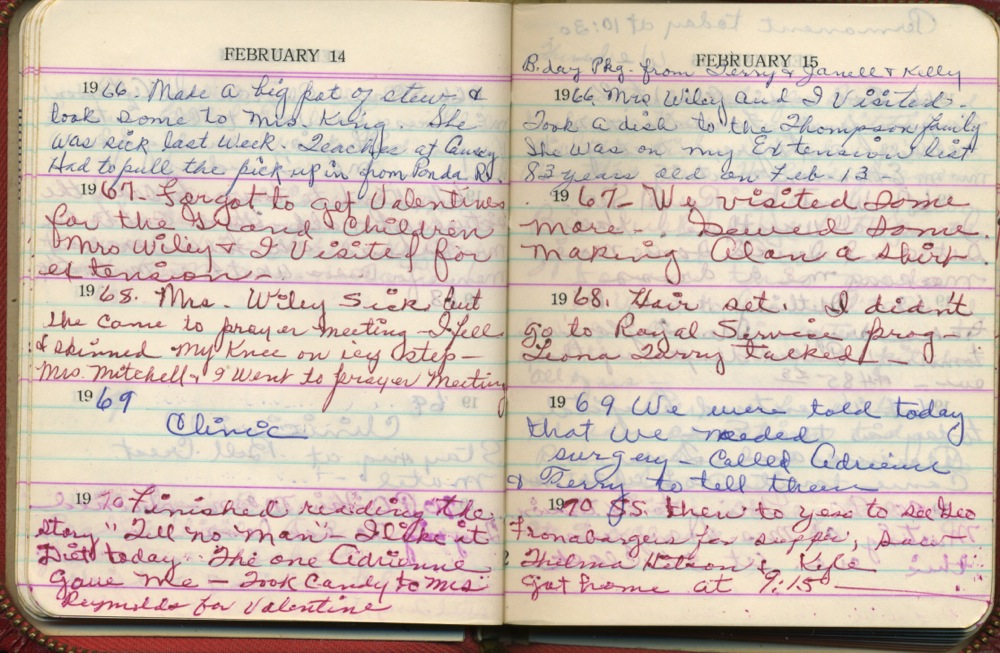 FEBRUARY 14
1966. Made a big pot of stew &
took some to Mrs King. She
was sick last week. Teaches at Causey
Had to pull the pick up in from Ponda Ro.
1967- Forgot to get Valentines
for the Grand Children
Mrs Wiley & I Visited for
extension.
1968. Mrs. Wiley Sick but
she came to prayer meeting - I fell
& skinned my Knee on icy step-
Mrs. Mitchell & I went to prayer meeting
1969
Clinic
1970 Finished reading the
story "Tell no man" - I like it
Just today. The one Adrienne
gave me - Took Candy to Mrs
Reynolds for Valentine
FEBRUARY 15
B.day Pkg. from Terry & Janell & Kelly
1966. Mrs Wiley and I Visited-
Took a dish to the Thompson family
She was on my Extension list
83 years old on Feb. 13-
1967- We visited some
more-. Sewed some.
making Alan a shirt
1968. Hair set. I didn't
go to Royal Service prog-
Leona Terry talked-
1969 We were told today
that we needed
surgery - Called Adrienne
& Terry to tell them
1970 JS. then to yeso to see Geo
Fronabargers for supper, saw
Thelma & Kyle
got home at 9:15-